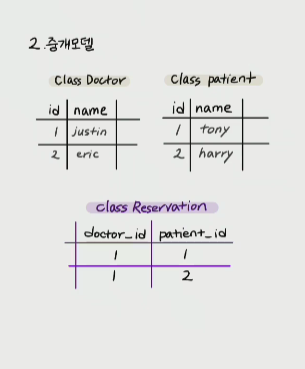 2.중개모델
Class Doctor
id name
1 justin
2 eric
Class patient
id name
1 tony
2 harry
class Reservation
doctor_id patient_id
1 1
1 2